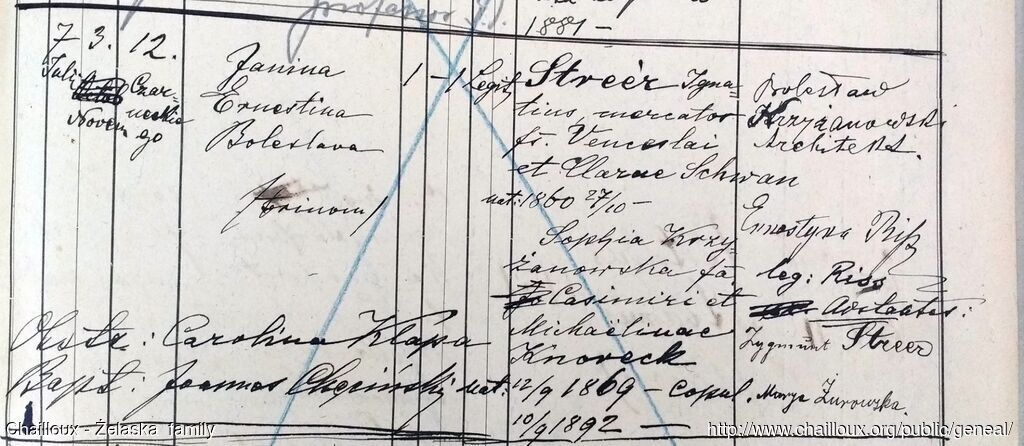 1881 -
7 3. 12.
Juli Novem
Czar-
neckie
go
Janina
Ernestina
Boleslava
/trinom/
1 - 1 Legit.
Streér Igna-
tius, mercator
fs. Venceslai
et Clarae Schwan
nat: 1860 27/10 -
Sophia Krzy-
żanowska fa
Casimiri et
Michaëlinae
Knoreck
nat: 12/9 1869 - copul.
10/9 1892 -
Bolesław
Krzyżanowski
Architekt.
Ernestyna Riss
leg: Riss
Adstantes:
Zygmunt Streer
Marya Żurowska.
Obstr: Carolina Klapa
Bapt: Joannes Chęciński
Chailloux - Żelaska family
http://www.chailloux.org/public/geneal/